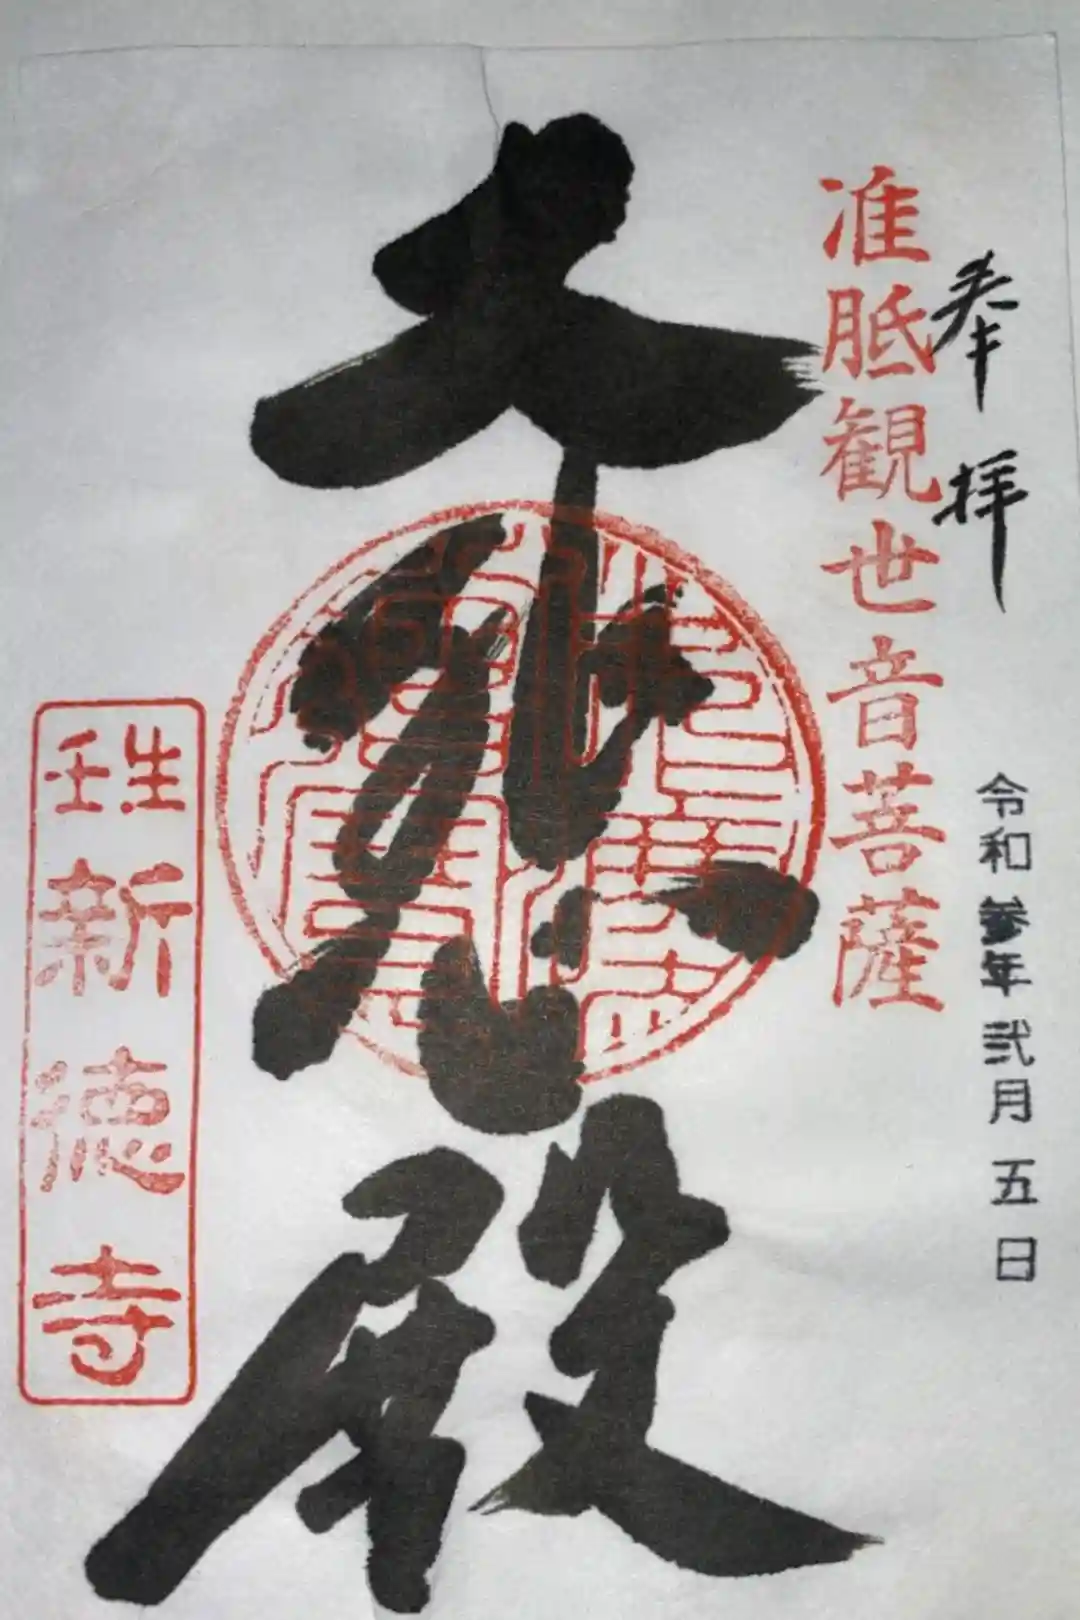 奉拝
准胝観世音菩薩
令和参年弐月五日
大悲殿
新徳寺